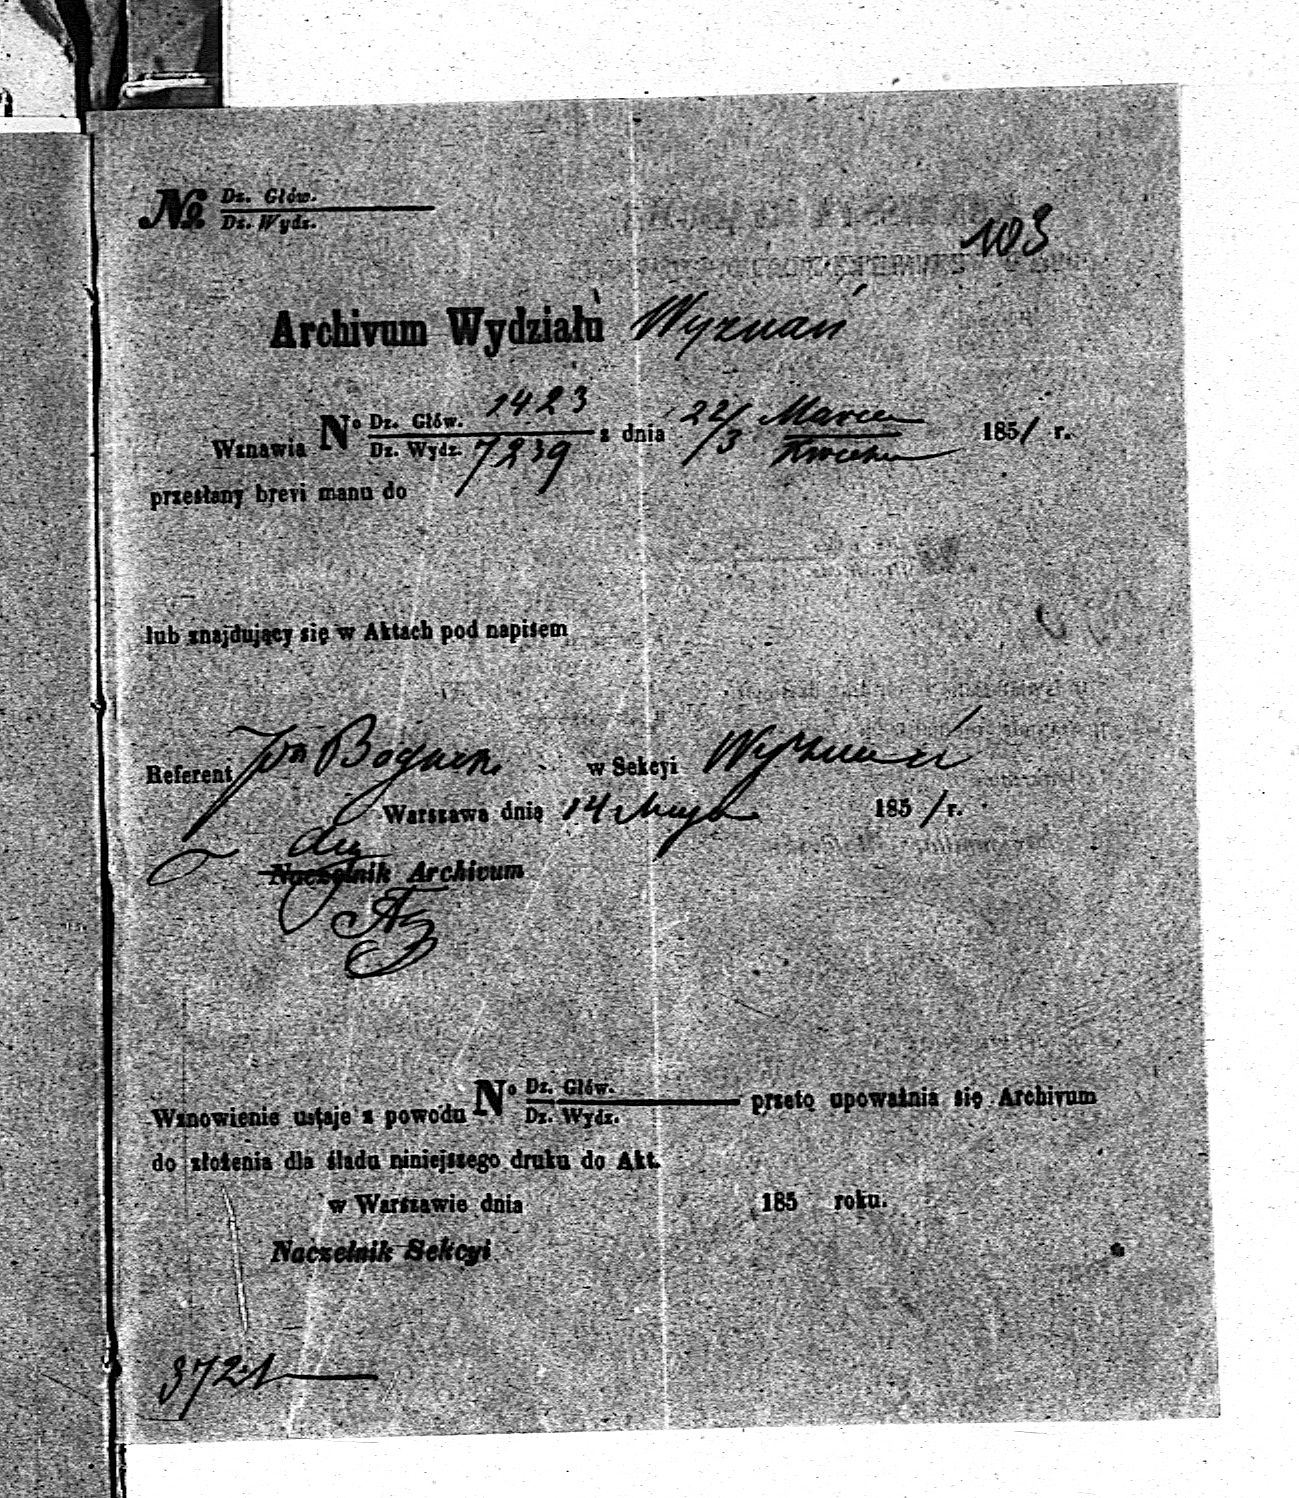 № Dz. Głów.
Dz. Wydz.
103
Archivum Wydziału Wyznań
Wznawia No Dz. Głów. 1423 z dnia 22/3 Marca 1851 r.
Dz. Wydz. 7239 Kwietnia
przesłany brevi manu do
lub znajdujący się w Aktach pod napisem
Referent Pan w Sekcyi Wyznań
Warszawa dnia 14 Maja 185/ r.
Naczelnik Archivum
Wznowienie ustaje z powodu No Dz. Głów. przeto upoważnia się Archivum
Dz. Wydz.
do złożenia dla śladu niniejszego druku do Akt.
w Warszawie dnia 185 roku.
Naczelnik Sekcyi
3721